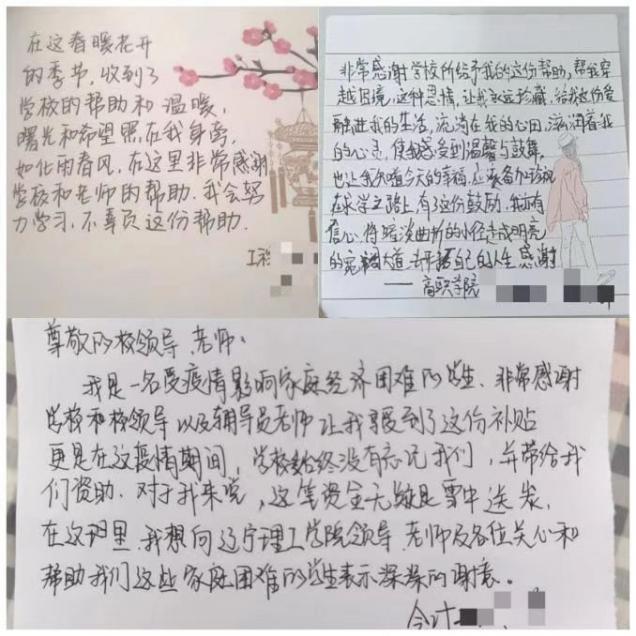 在这春暖花开
的季节,收到了
学校的帮助和温暖,
曙光和希望照在我身旁,
如化雨春风,在这里非常感谢
学校和老师的帮助.我会努
力学习,不辜负这份帮助.
非常感谢学校所给予我的这份帮助,帮我穿
越困境,这种恩情,让我永远珍藏,给我这份爱
融进我的生活,流淌在我的心田,滋润着我
的心灵,使我感受到温馨与鼓舞,
也让我知道今天的幸福,应要备加珍视
在求学之路上,有这份鼓励,我亦有
信心,将曲折的小径走成明亮
的宽阔大道,去开拓自己的人生感谢
——高职学院
尊敬的校领导、老师:
我是一名受疫情影响家庭经济困难的学生、非常感谢
学校和校领导以及辅导员老师让我享受到了这份补贴
更是在这疫情期间,学校始终没有忘记我们,并带给我
们资助.对于我来说,这笔资金无疑是雪中送炭,
在这里,我想向辽宁理工学院领导、老师及各位关心和
帮助我们这些家庭困难的学生表示深深的谢意。
会计